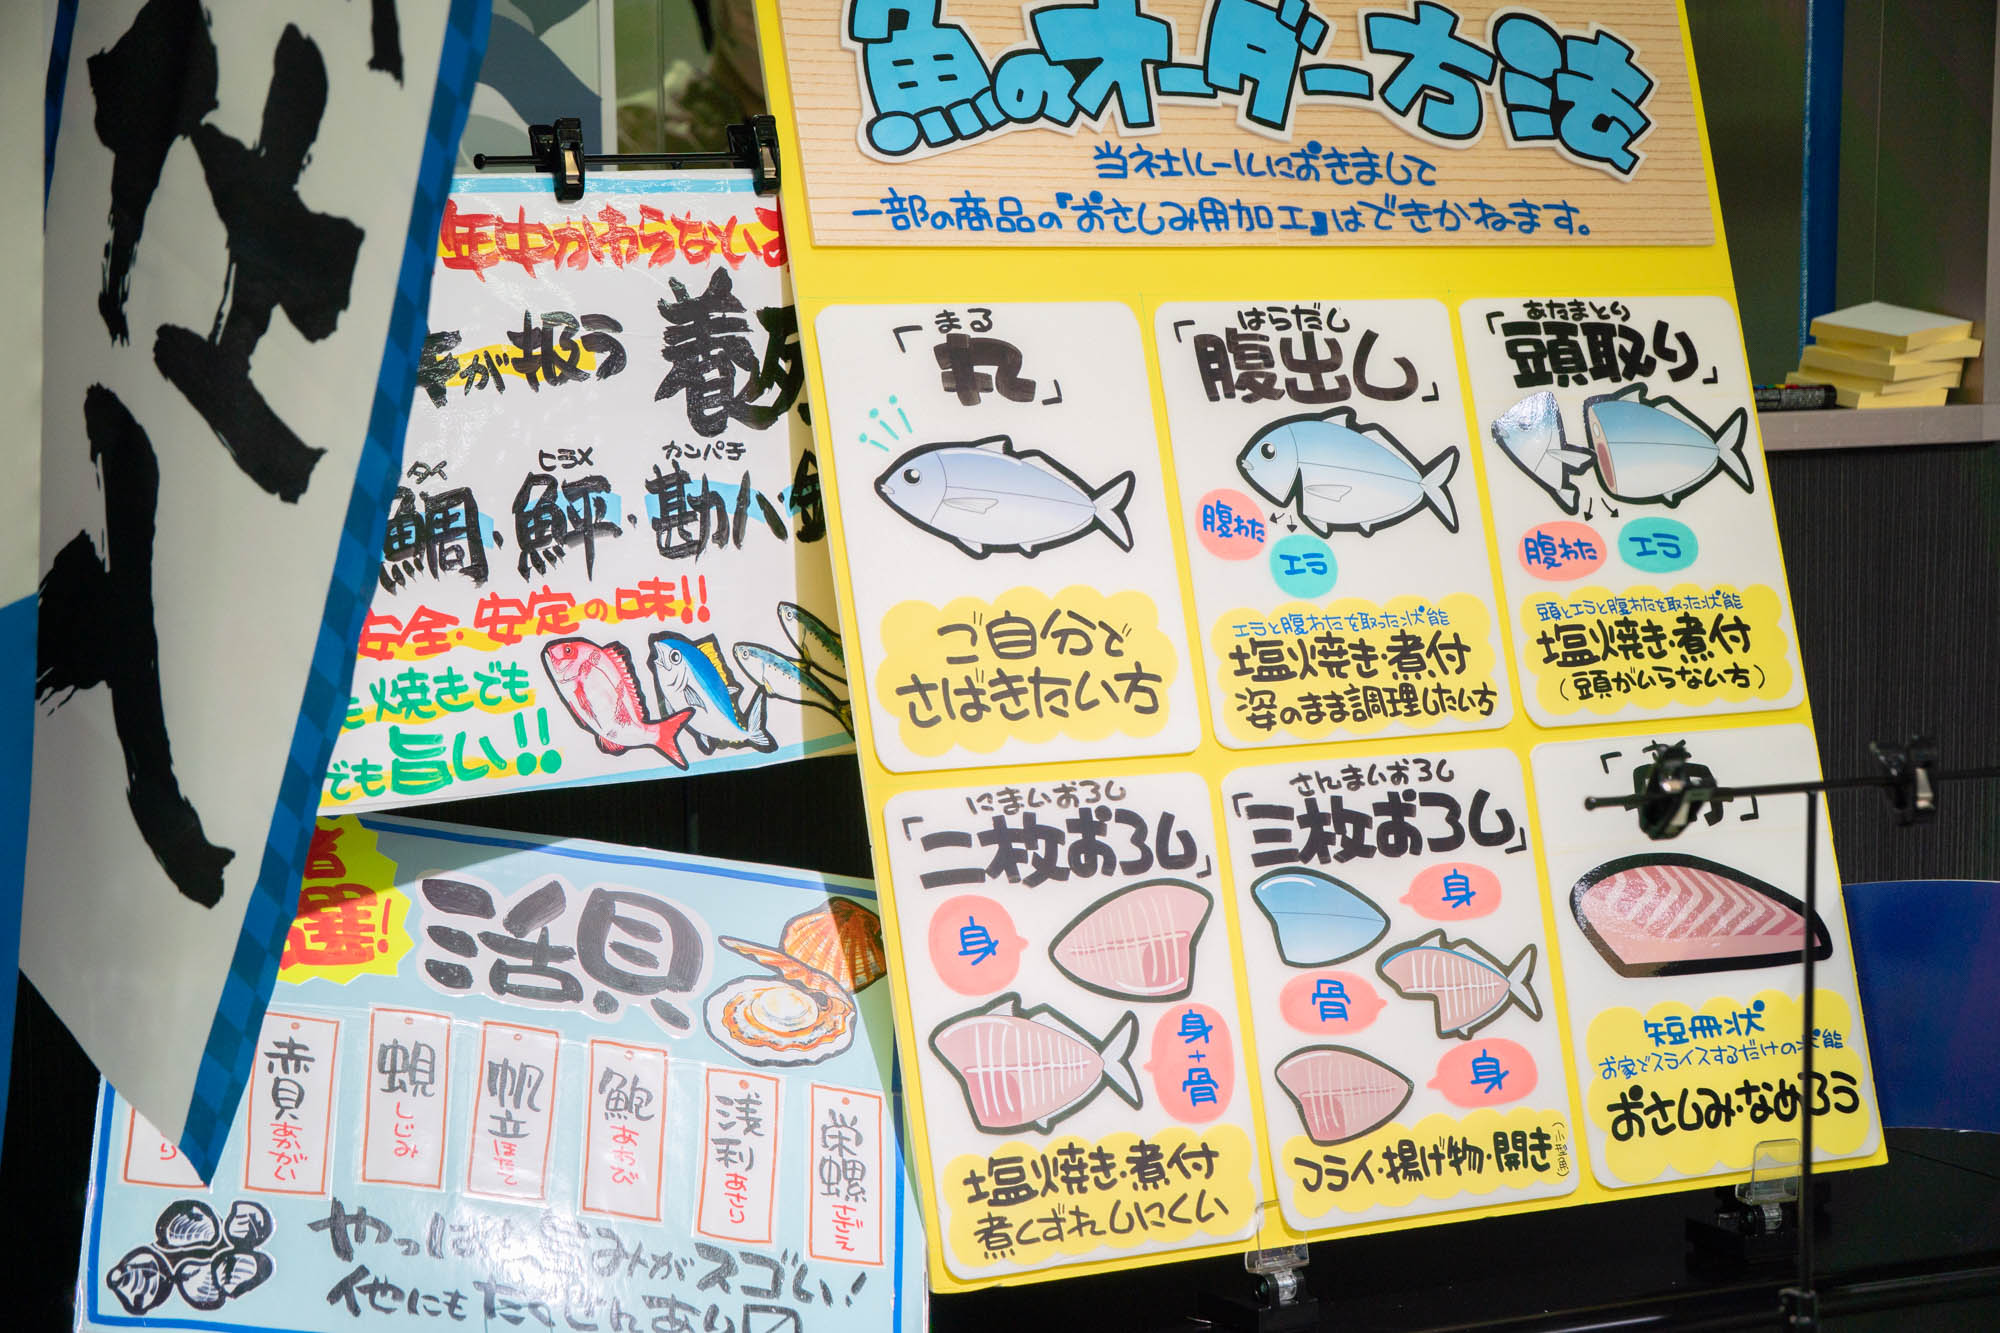 魚のオーダー方法
当社ルールにおきまして
一部の商品の『おさしみ用加工』はできかねます。
まる
「丸」
ご自分で
さばきたい方
はらだし
「腹出し」
腹わた
エラ
エラと腹わたを取った状態
塩焼き・煮付
姿のまま調理したい方
あたまとり
「頭取り」
腹わた
エラ
頭とエラと腹わたを取った状態
塩焼き・煮付
(頭がいらない方)
にまいおろし
「二枚おろし」
身
身+骨
塩焼き・煮付
煮くずれしにくい
さんまいおろし
「三枚おろし」
身
骨
身
フライ・揚げ物・開き(小型魚)
短冊状
お家でスライスするだけの状態
おさしみ・なめろう
年中かわらない
が扱う 養
タイ ヒラメ カンパチ
鯛・鮃・勘八
安全・安定の味!!
も焼きでも
でも旨い!!
選!
活貝
り
赤貝 あかがい
蜆 しじみ
帆立 ほたて
鮑 あわび
浅利 あさり
栄螺 さざえ
やっぱ
みがスゴい!
他にもたくさんあり〼